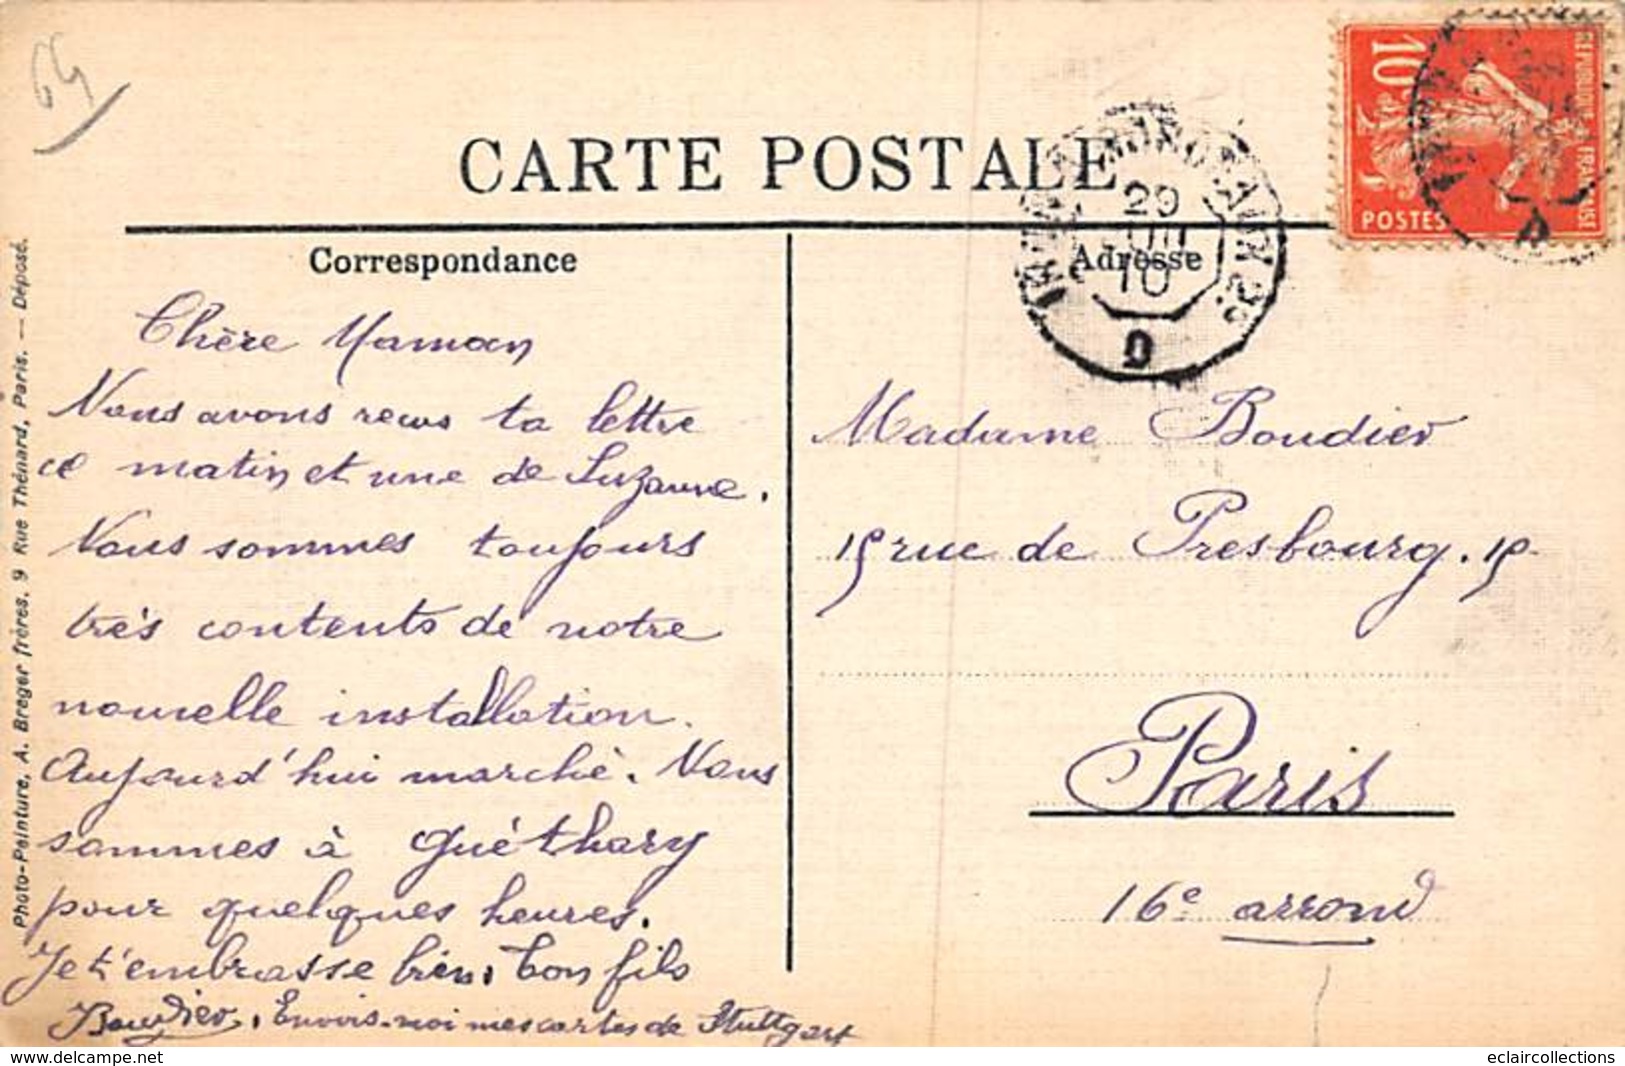 64
CARTE POSTALE
Correspondance
Adresse
10
POSTES
REPUBLIQUE FRANÇAISE
29
10
D
Photo-Peinture, A. Breger frères, 9 Rue Thénard, Paris. — Déposé.
Chère Maman
Nous avons reçus ta lettre
ce matin et une de Suzanne.
Nous sommes toujours
très contents de notre
nouvelle installation.
Aujourd'hui marché. Nous
sommes à Guéthary
pour quelques heures.
Je t'embrasse bien, ton fils
Boudier. Envois-moi mes cartes de Stuttgart
Madame Boudier
15 rue de Presbourg. 15
Paris
16e arrond
delcampe.net
eclaircollections